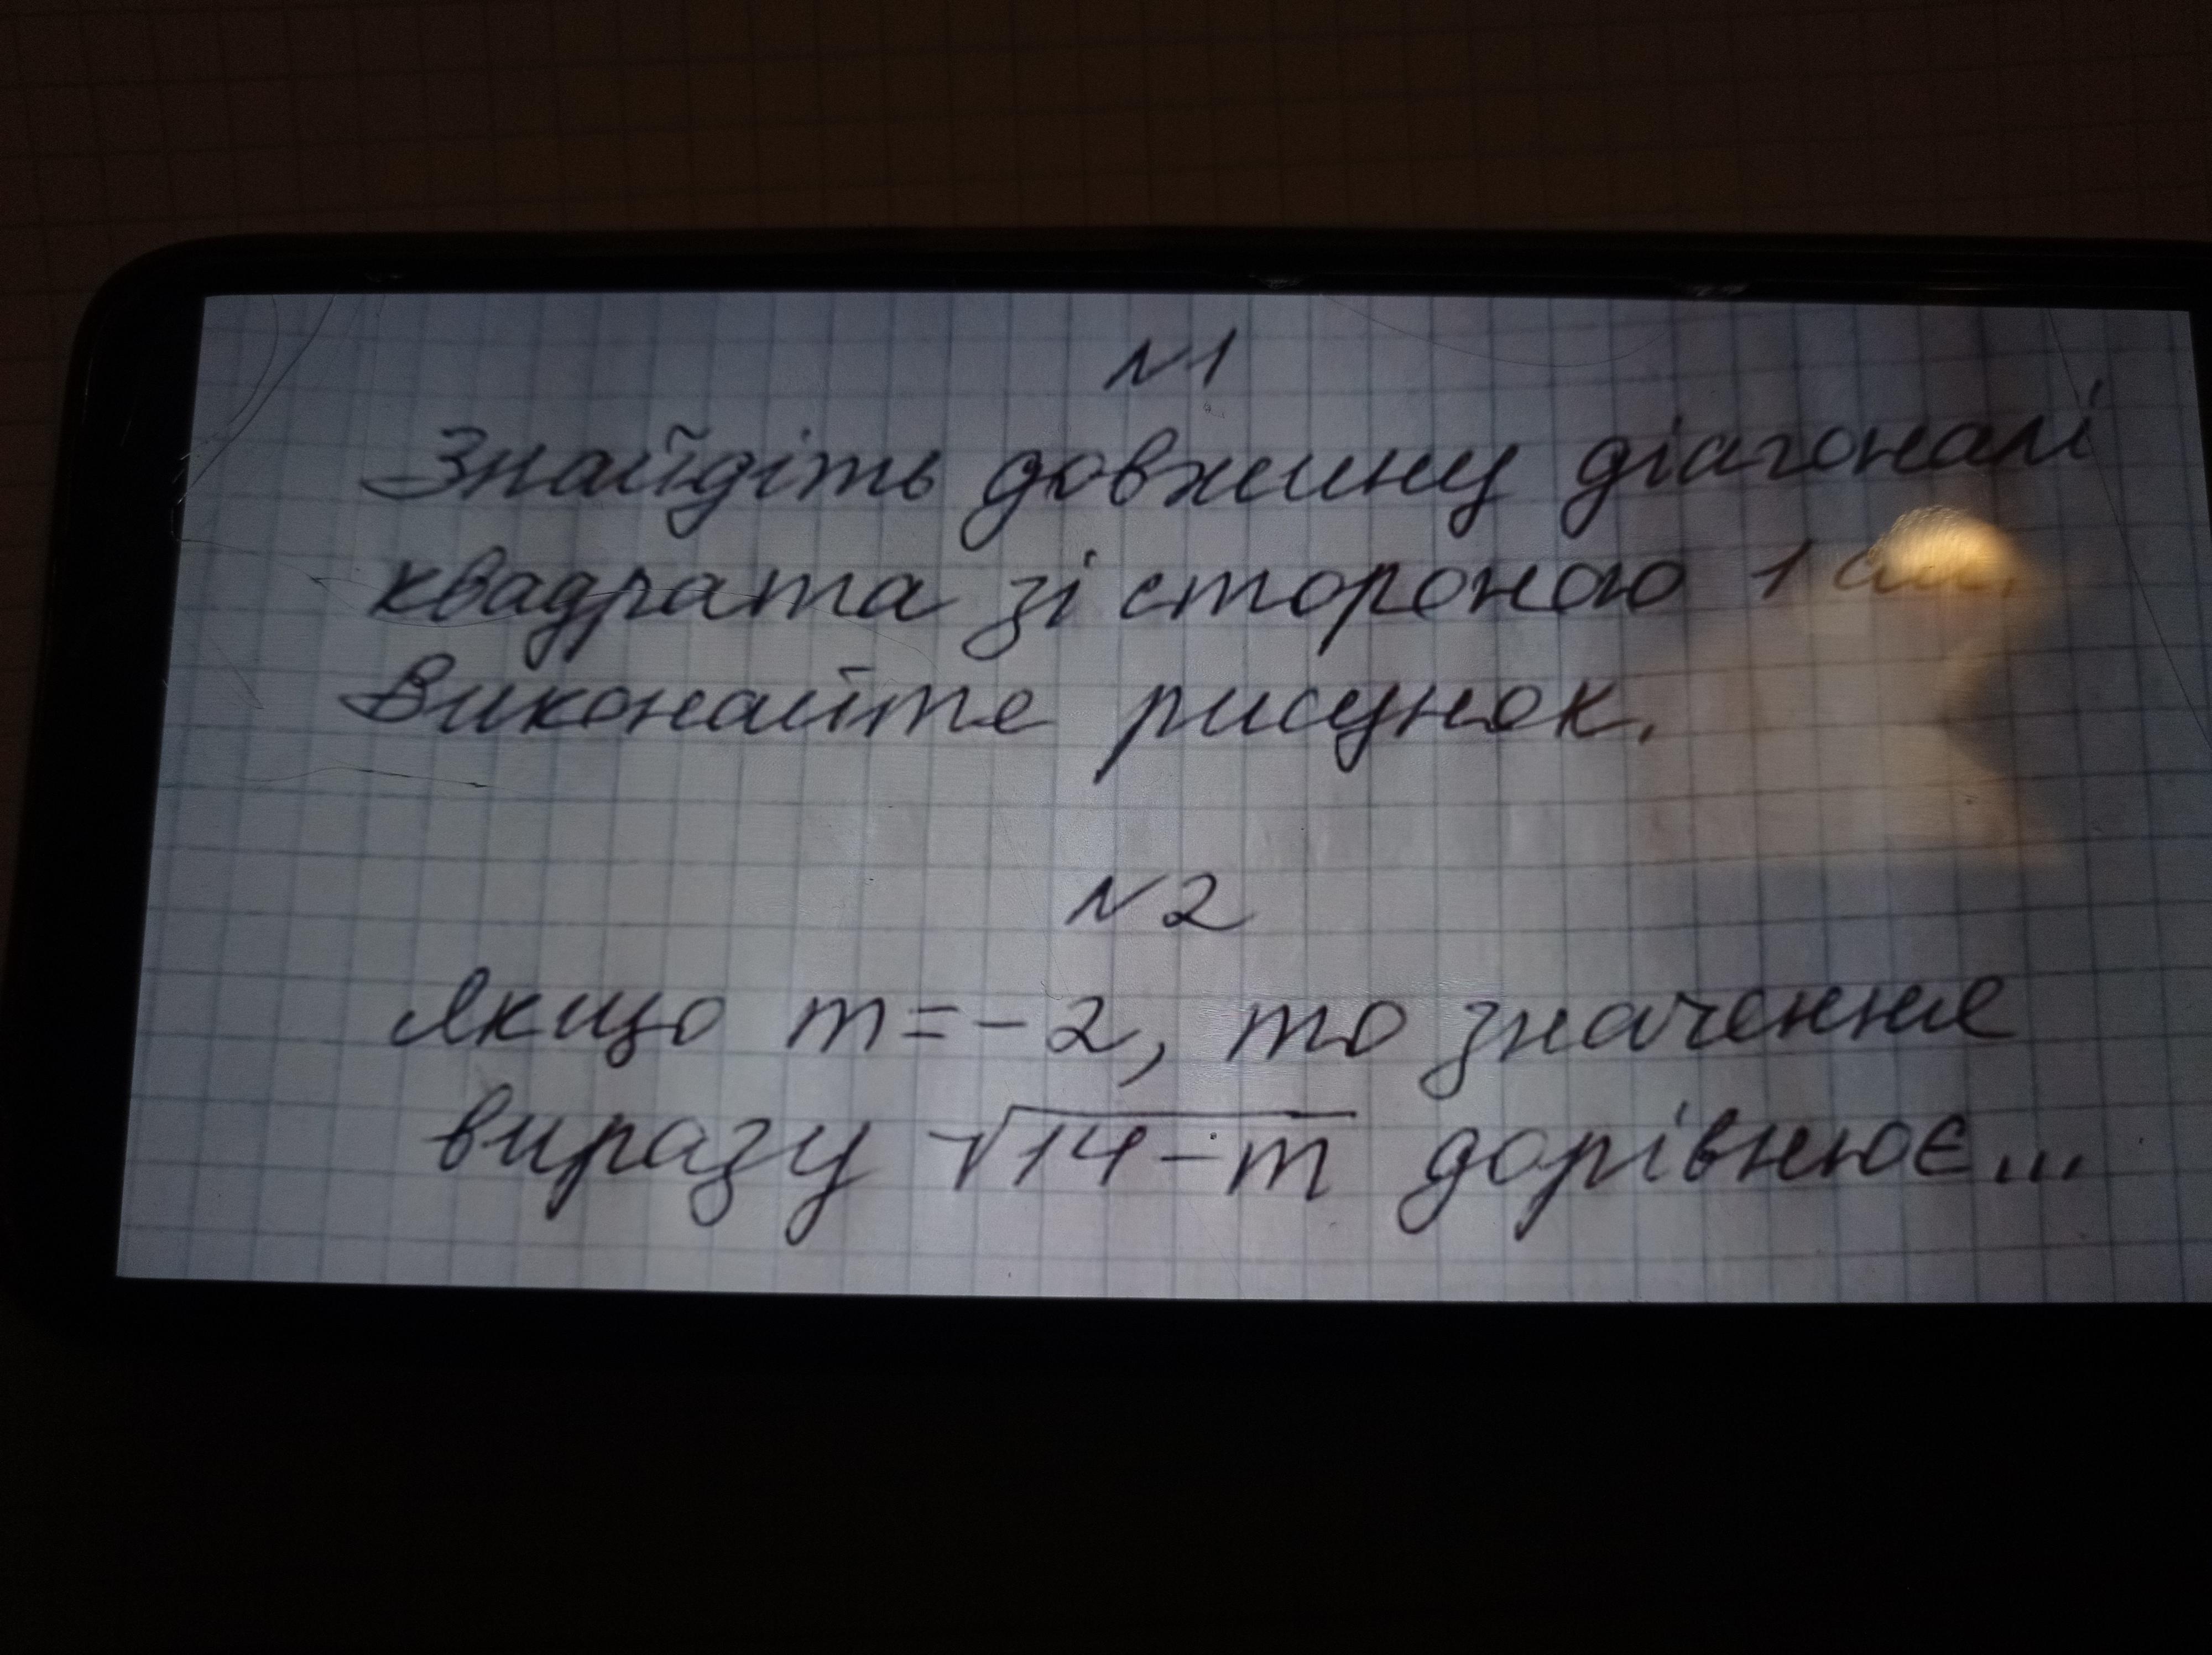 №1
Знайдіть довжину діагоналі
квадрата зі стороною 1 см.
Виконайте рисунок.
№2
Якщо m=-2, то значення
виразу √14-m дорівнює...